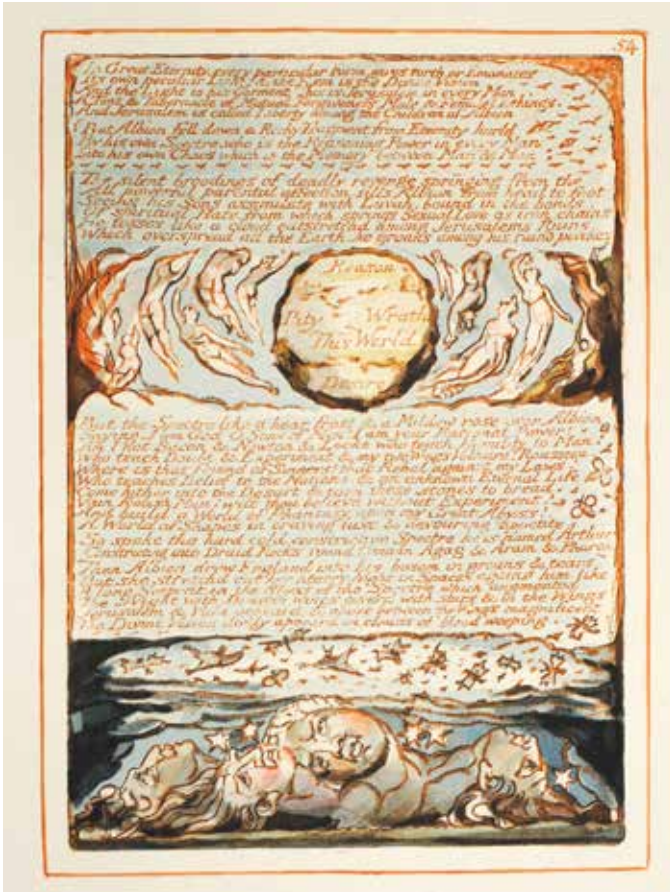 54
In Great Eternity, every particular Form gives forth or Emanates
Its own peculiar Light, & the Form is the Divine Vision
And the Light is his Garment. This is Jerusalem in every Man
A Tent & Tabernacle of Mutual Forgiveness Male & Female Clothings.
And Jerusalem is called Liberty among the Children of Albion
But Albion fell down a Rocky fragment from Eternity hurld
By his own Spectre, who is the Reasoning Power in every Man
Into his own Chaos which is the Memory between Man & Man
The silent broodings of deadly revenge springing from the
All powerful parental affection, fills Albion from head to foot
Seeing his Sons assimilate with Luvah, bound in the bonds
Of spiritual Hate, from which springs Sexual Love as iron chains:
He tosses like a cloud outstretchd among Jerusalems Ruins
Which overspread all the Earth, he groans among his ruind porches
Reason
Pity Wrath
This World
Desire
But the Spectre like a hoar frost & a Mildew rose over Albion
Saying, I am God O Sons of Men! I am your Rational Power!
Am I not Bacon & Newton & Locke who teach Humility to Man!
Who teach Doubt & Experiment & my two Wings Voltaire: Rousseau.
Where is that Friend of Sinners! that Rebel against my Laws!
Who teaches Belief to the Nations, & an unknown Eternal Life
Come hither into the Desart & turn these stones to bread.
Vain foolish Man! wilt thou believe without Experiment?
And build a World of Phantasy upon my Great Abyss!
A World of Shapes in craving lust & devouring appetite
So spoke the hard cold constrictive Spectre he is named Arthur
Constricting into Druid Rocks round Canaan Agag & Aram & Pharoh
Then Albion drew England into his bosom in groans & tears
But she stretchd out her starry Night in Spaces against him. like
A long Serpent, in the Abyss of the Spectre which augmented
The Night with Dragon wings coverd with stars & in the Wings
Jerusalem & Vala appeard: & above between the Wings magnificent
The Divine Vision dimly appeard in clouds of blood weeping.